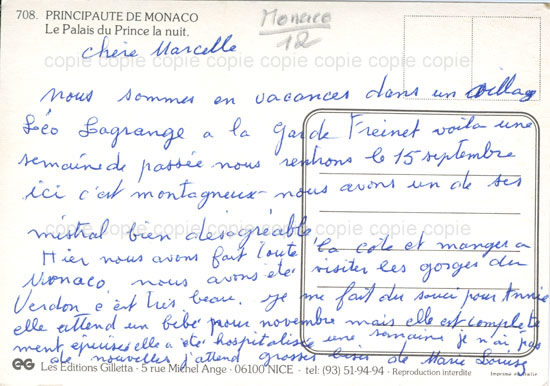 708. PRINCIPAUTE DE MONACO
Le Palais du Prince la nuit.
Monaco
12
copie copie copie copie copie copie copie
chère Marcelle
nous sommes en vacances dans un village
Léo Lagrange a la Garde Freinet voila une
semaine de passée nous rentrons le 15 septembre
ici c'est montagneux nous avons un de ses
mistral bien désagréable
Hier nous avons fait toute la côte et manger a
Monaco, nous avons été visiter les gorges du
Verdon c'est très beau. je me fait du souci pour Annie
elle attend un bébé pour novembre mais elle est complete
ment épuisée elle a été hospitalisée une semaine je n'ai pas
de nouvelles j'attend grosses bises de Marie Louise
EG Les Editions Gilletta - 5 rue Michel Ange - 06100 NICE - tel: (93) 51-94-94 - Reproduction interdite